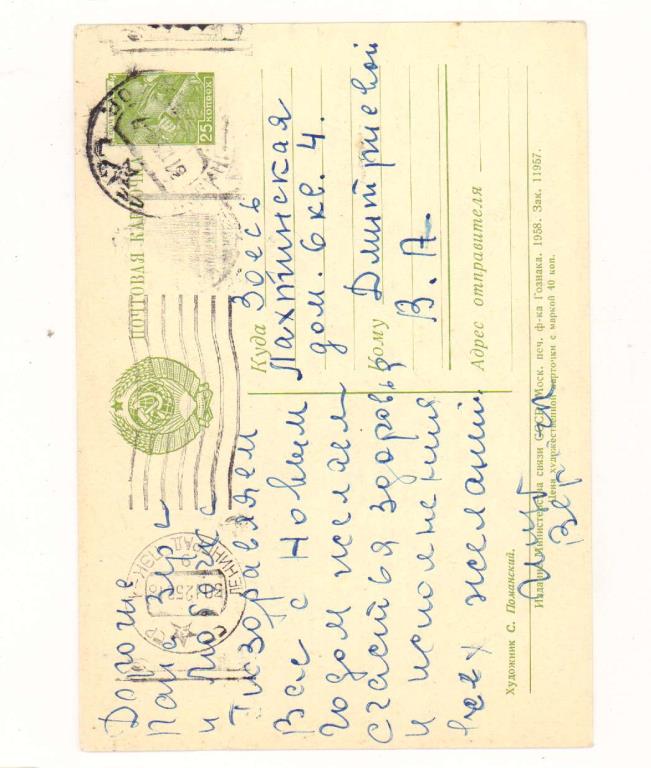 ПОЧТОВАЯ КАРТОЧКА
25 КОПЕЕК
ЛЕНИНГРАД
Дорогие
Папа
и
Поздравляем
Вас с Новым
Годом желаем
счастья здоровья
и исполнения
всех желаний.
Куда Здесь
Лахтинская
дом. 6 кв. 4.
Кому Дмитриевой
В. А.
Адрес отправителя
Художник С. Поманский.
Издание Министерства связи СССР. Моск. печ. ф-ка Гознака. 1958. Зак. 11957.
Цена художественной карточки с маркой 40 коп.